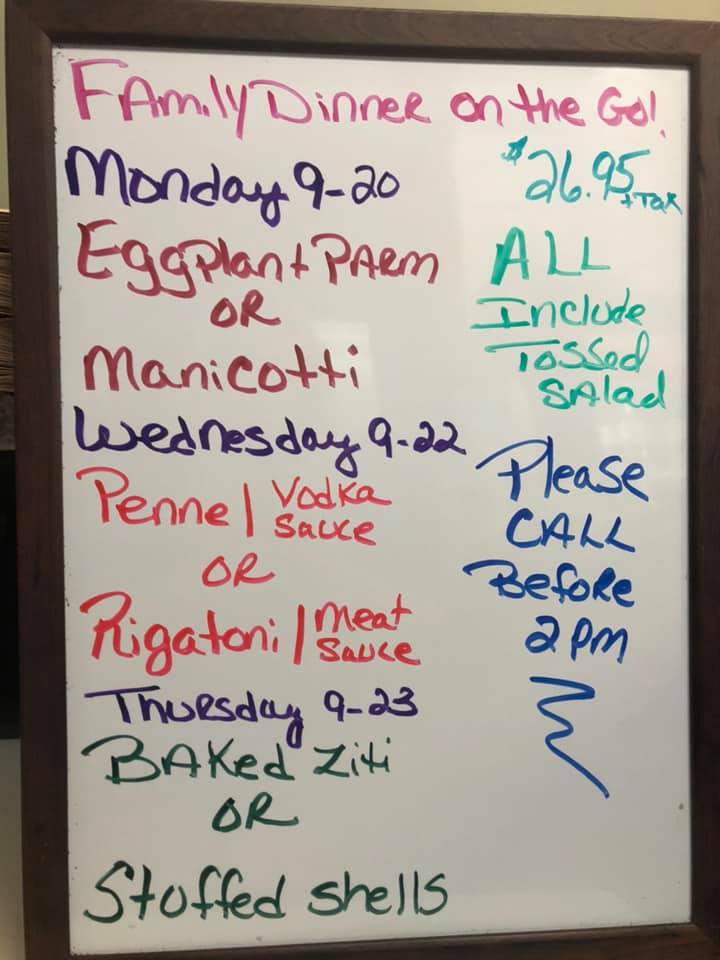 FAmily Dinner on the Go!
Monday 9-20
$26.95 + Tax
Eggplant PARM
OR
Manicotti
ALL
Include
Tossed
SAlad
Wednesday 9-22
Penne | Vodka
Sauce
OR
Rigatoni | Meat
Sauce
Please
CALL
Before
2 PM
Thursday 9-23
BAKed Ziti
OR
Stuffed shells